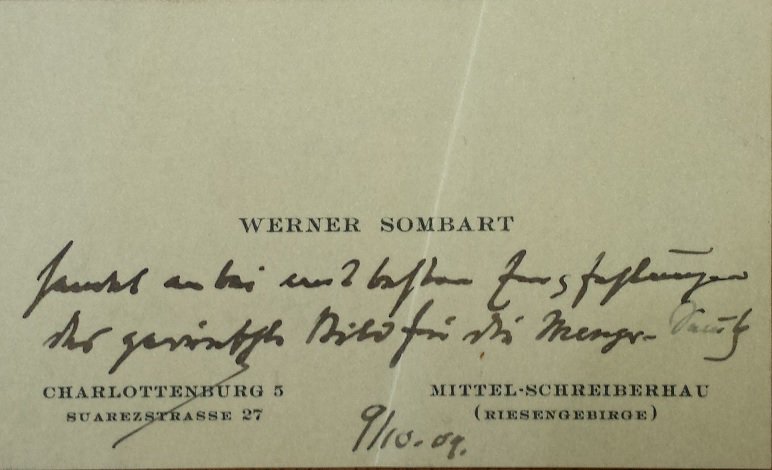 WERNER SOMBART
sendet anbei mit besten Empfehlungen
das gewünschte Bild für die
CHARLOTTENBURG 5 MITTEL-SCHREIBERHAU
SUAREZSTRASSE 27 (RIESENGEBIRGE)
9/10.09.